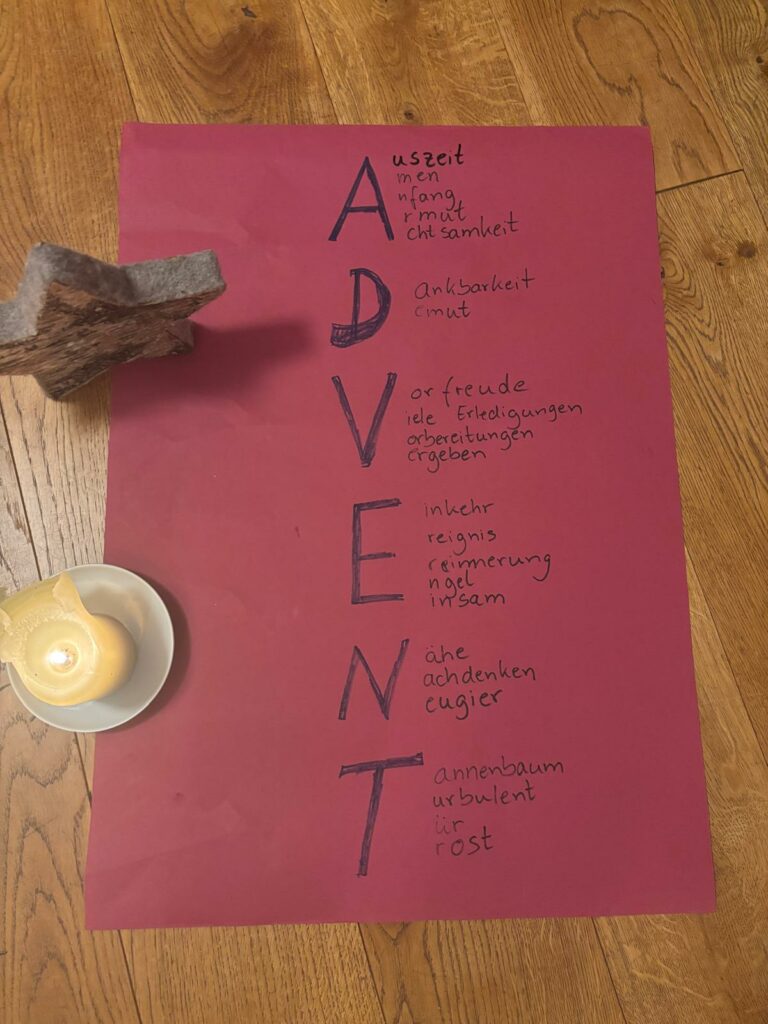 A uszeit
men
nfang
rmut
chtsamkeit
D ankbarkeit
emut
V orfreude
iele Erledigungen
orbereitungen
ergeben
E inkehr
reignis
reinnerung
ngel
insam
N ähe
achdenken
eugier
T annenbaum
urbulent
ür
rost